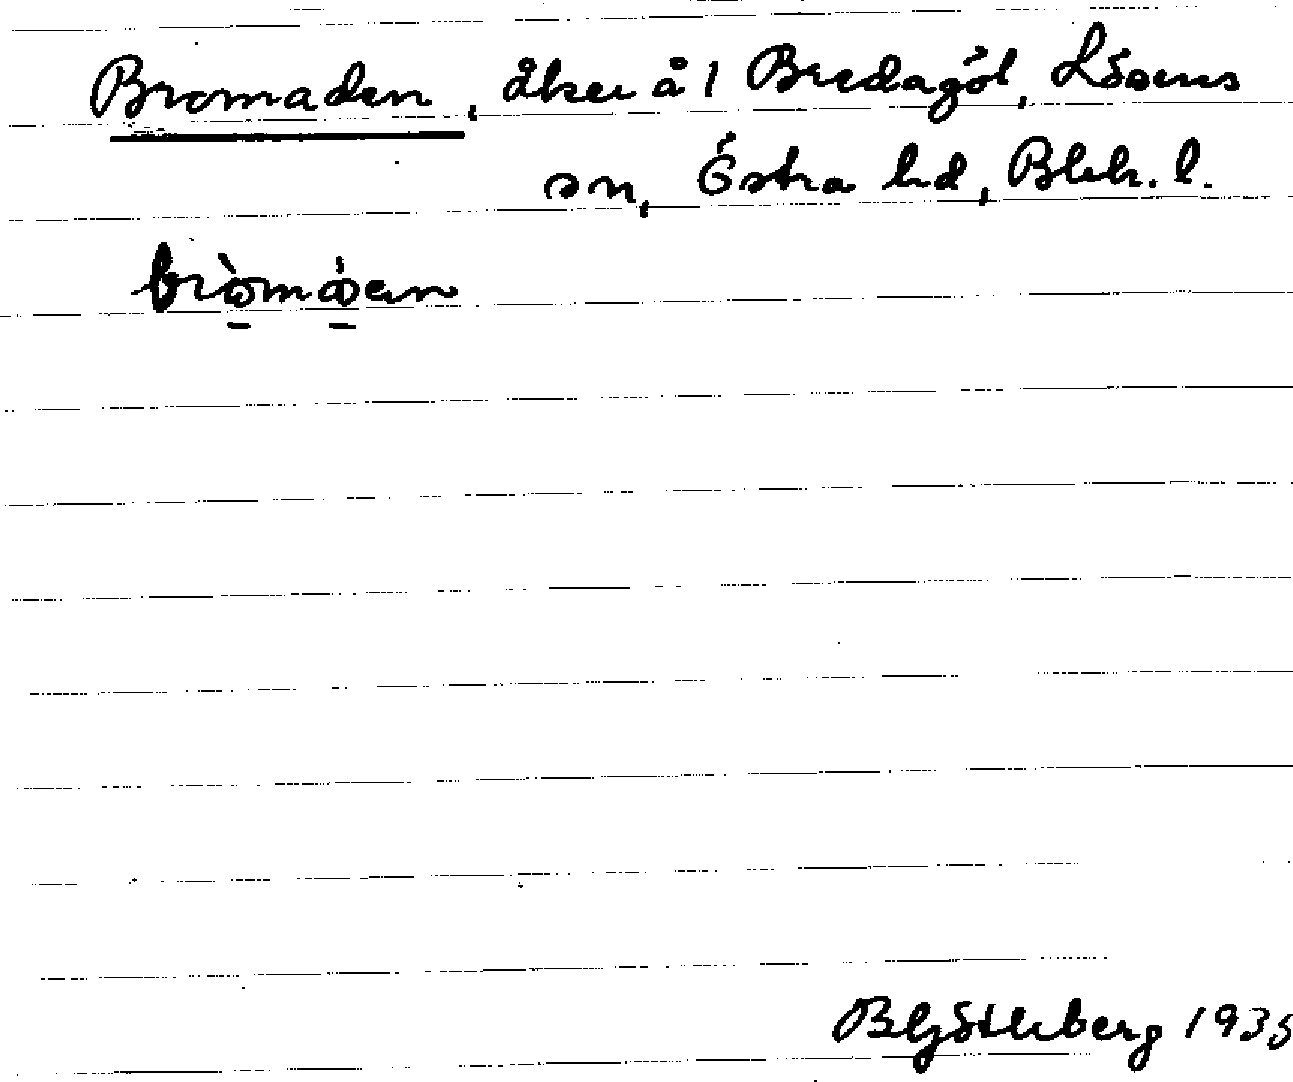 Bromaden, åker å 1 Bredagöl, Lösens
sn, Östra hd, Blek. l.
bròmȧ́en
B Göthberg 1935